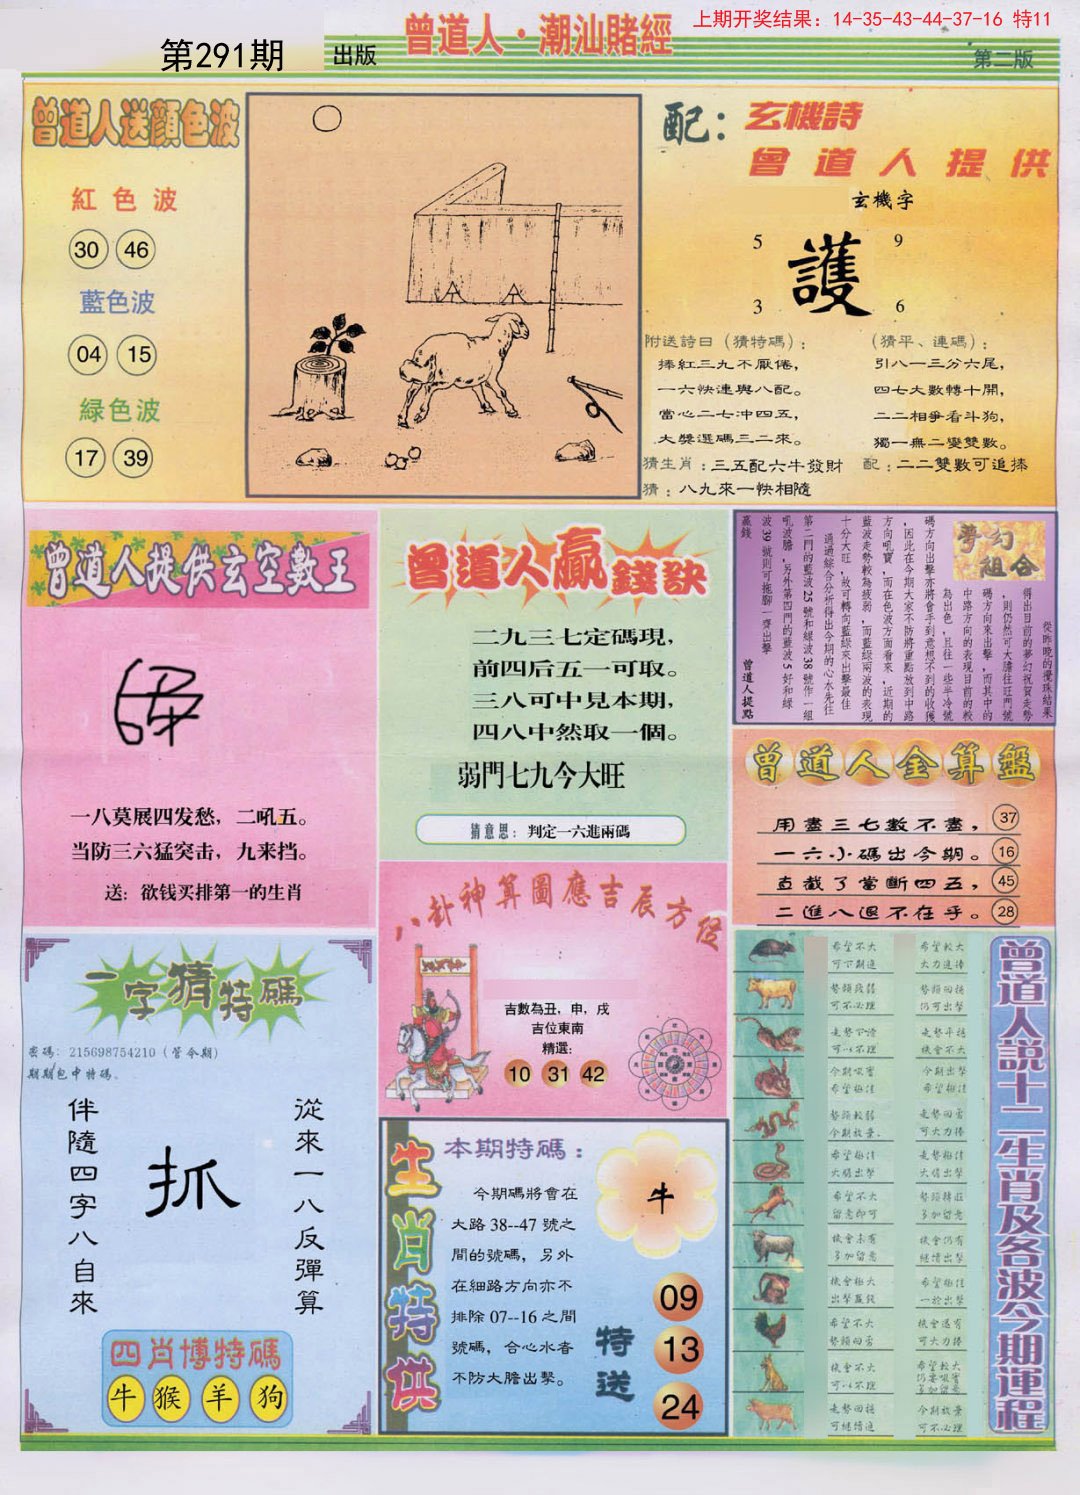 上期开奖结果：14-35-43-44-37-16 特11
第291期
出版
曾道人·潮汕賭經
第二版
曾道人送顏色波
紅色波
30 46
藍色波
04 15
緑色波
17 39
配：玄機詩
曾道人提供
玄機字
5 9
護
3 6
附送詩曰（猜特碼）：
捧紅三九不厭倦，
一六快連與八配。
當心二七冲四五，
大獎選碼三二來。
（猜平、連碼）：
引八一三分六尾，
四七大數轉十開，
二二相爭看斗狗，
獨一無二變雙數。
猜生肖：三五配六牛發財
配：二二雙數可追捧
猜：八九來一快相隨
曾道人提供玄空數王
一八莫展四发愁，二吼五。
当防三六猛突击，九来挡。
送：欲钱买排第一的生肖
曾道人贏錢訣
二九三七定碼現，
前四后五一可取。
三八可中見本期，
四八中然取一個。
弱門七九今大旺
猜意思：判定一六進兩碼
夢幻組合
從昨晚的攪珠結果
得出目前的夢幻祝賀走勢
，則仍然可大膽往旺門號
碼方向來出擊，而其中的
中路方向的表現目前的較
為出色，且往一些半冷號
碼方向出擊亦將會手到意想不到的收獲
，因此在今期大家不防將重點放到中路
方向吼實，而在色波方面看來，近期的
藍波走勢較為疲弱，而藍緑兩波的表現
十分大旺，故可轉向藍緑來出擊最佳
通過綜合分析得出今期的心水先往
第二門的藍波25號和緑波38號作一組
吼波膽，另外第四門的藍波5好和緑
波39號則可拖腳一齊出擊
贏錢
曾道人提點
曾道人金算盤
用盡三七數不盡， 37
一六小碼出今期。 16
直截了當斷四五， 45
二進八退不在乎。 28
一字猜特碼
密碼：215698754210（管令期）
期期包中特碼、
從來一八反彈算
抓
伴隨四字八自來
四肖博特碼
牛 猴 羊 狗
八卦神算圖應吉辰方位
吉數為丑，申，戌
吉位東南
精選：
10 31 42
生肖特供
本期特碼：
今期碼將會在
大路38--47號之
間的號碼，另外
在細路方向亦不
排除07--16之間
號碼，合心水者
不防大膽出擊。
牛
特送
09
13
24
曾道人說十二生肖及各波今期運程
希望不大
可下期進
希望較大
大力進捧
勢頭段弱
可不必理
勢頭回揚
仍可出擊
走勢平穩
機會不大
今期吼實
希望極佳
今期出擊
希望極佳
勢頭較弱
今期放棄、
走勢回勇
可大力捧
希望極佳
大膽出擊
走勢極佳
大膽出擊
希望不大
留意即可
勢頭轉旺
多加留意
機會未有
多加留意
機會仍有
繼續出擊
機會極大
出擊贏錢
希望極佳
一於出擊
希望不大
勢頭回勇
機會還有
可大力捧
機會不大
可以不理
希望較大
仍要吼實
多加留意
走勢回穩
可繼續進
今期放棄
可不必理